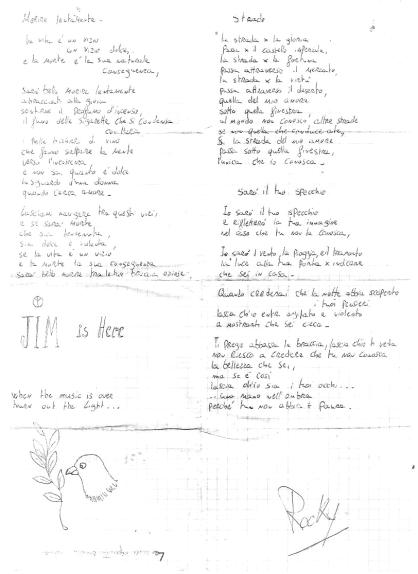 Morire lentamente.
La vita è un vizio
un vizio dolce,
e la morte è la sua naturale
conseguenza,
Sarà bello morire lentamente
abbracciati alla gioia
sentire il profumo d'incenso,
il fumo delle sigarette che si condensa
di vino
che fanno la mente
verso l'incoscienza,
e non sa quanto è dolce
lo sguardo d'una donna
quando cerca amore.
Lasciami navigare tra questi vizi,
e se sarà morte,
che sia lenta,
sia dolce è
se la vita è un vizio
e la morte la sua conseguenza
sarà bello morire tra le tue braccia
JIM is Here
when the music is over
turn out the light...
Strade
La strada x la gloria
passa x il castello
la strada x la fortuna
passa attraverso il mercato,
la strada x la virtù
passa attraverso il deserto,
quella del mio amore
sotto quella finestra
al mondo non conosco altre strade
se non quella che conduce a te,
Sì la strada del mio amore
passa sotto quella finestra,
l'unica che io conosca.
Sarò il tuo specchio
Io sarò il tuo specchio
e rifletterò la tua immagine
nel caso che tu non la conosca,
Io sarò il vento, la pioggia, ed il tramonto
la luce alla tua porta x indicare
che sei in casa.
Quando crederai che la notte abbia scoperto
i tuoi pensieri
lascia ch'io entri e violento
a mostrarti che sei cieca.
Ti prego abbassa le braccia, lascia ch'io ti veda
non riesco a credere che tu non conosca
la bellezza che sei,
ma se è così
lascia ch'io sia i tuoi occhi...
una mano nell'ombra
perché tu non abbia + paura.
Rocky